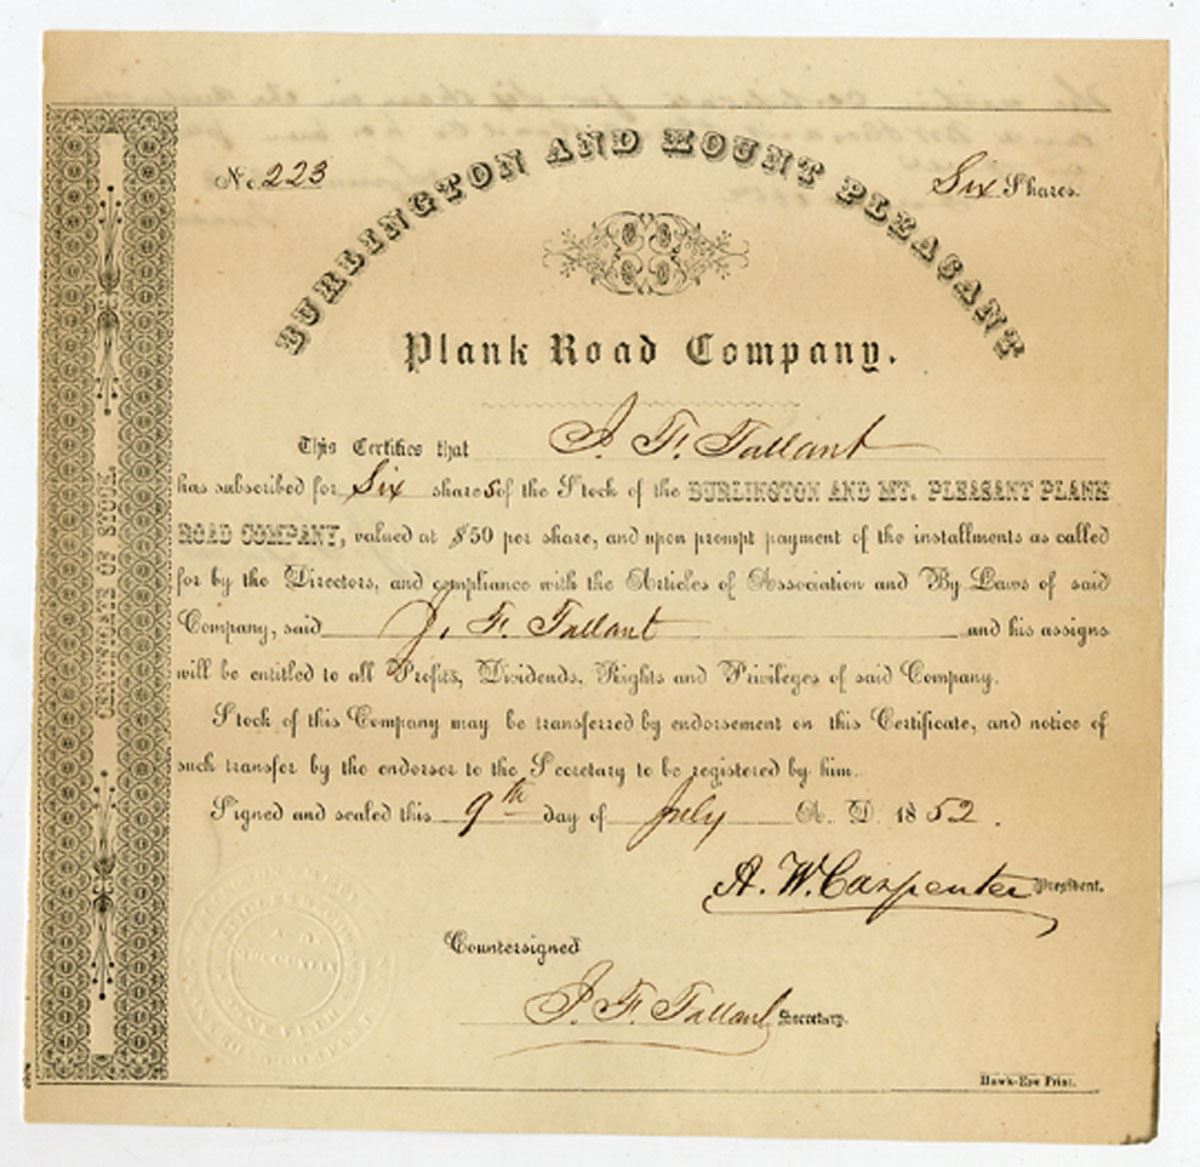 BURLINGTON AND MOUNT PLEASANT
No. 223
Six Shares.
Plank Road Company.
This Certifies that J. F. Tallant
has subscribed for Six shares of the Stock of the BURLINGTON AND MT. PLEASANT PLANK
ROAD COMPANY, valued at $50 per share, and upon prompt payment of the installments as called
for by the Directors, and compliance with the Articles of Association and By Laws of said
Company, said J. F. Tallant and his assigns
will be entitled to all Profits, Dividends, Rights and Privileges of said Company.
Stock of this Company may be transferred by endorsement on this Certificate, and notice of
such transfer by the endorsor to the Secretary to be registered by him.
Signed and sealed this 9th day of July A. D. 1852.
A. W. Carpenter President.
Countersigned
J. F. Tallant Secretary.
Hawk-Eye Print.
CERTIFICATE OF STOCK.
A. D.